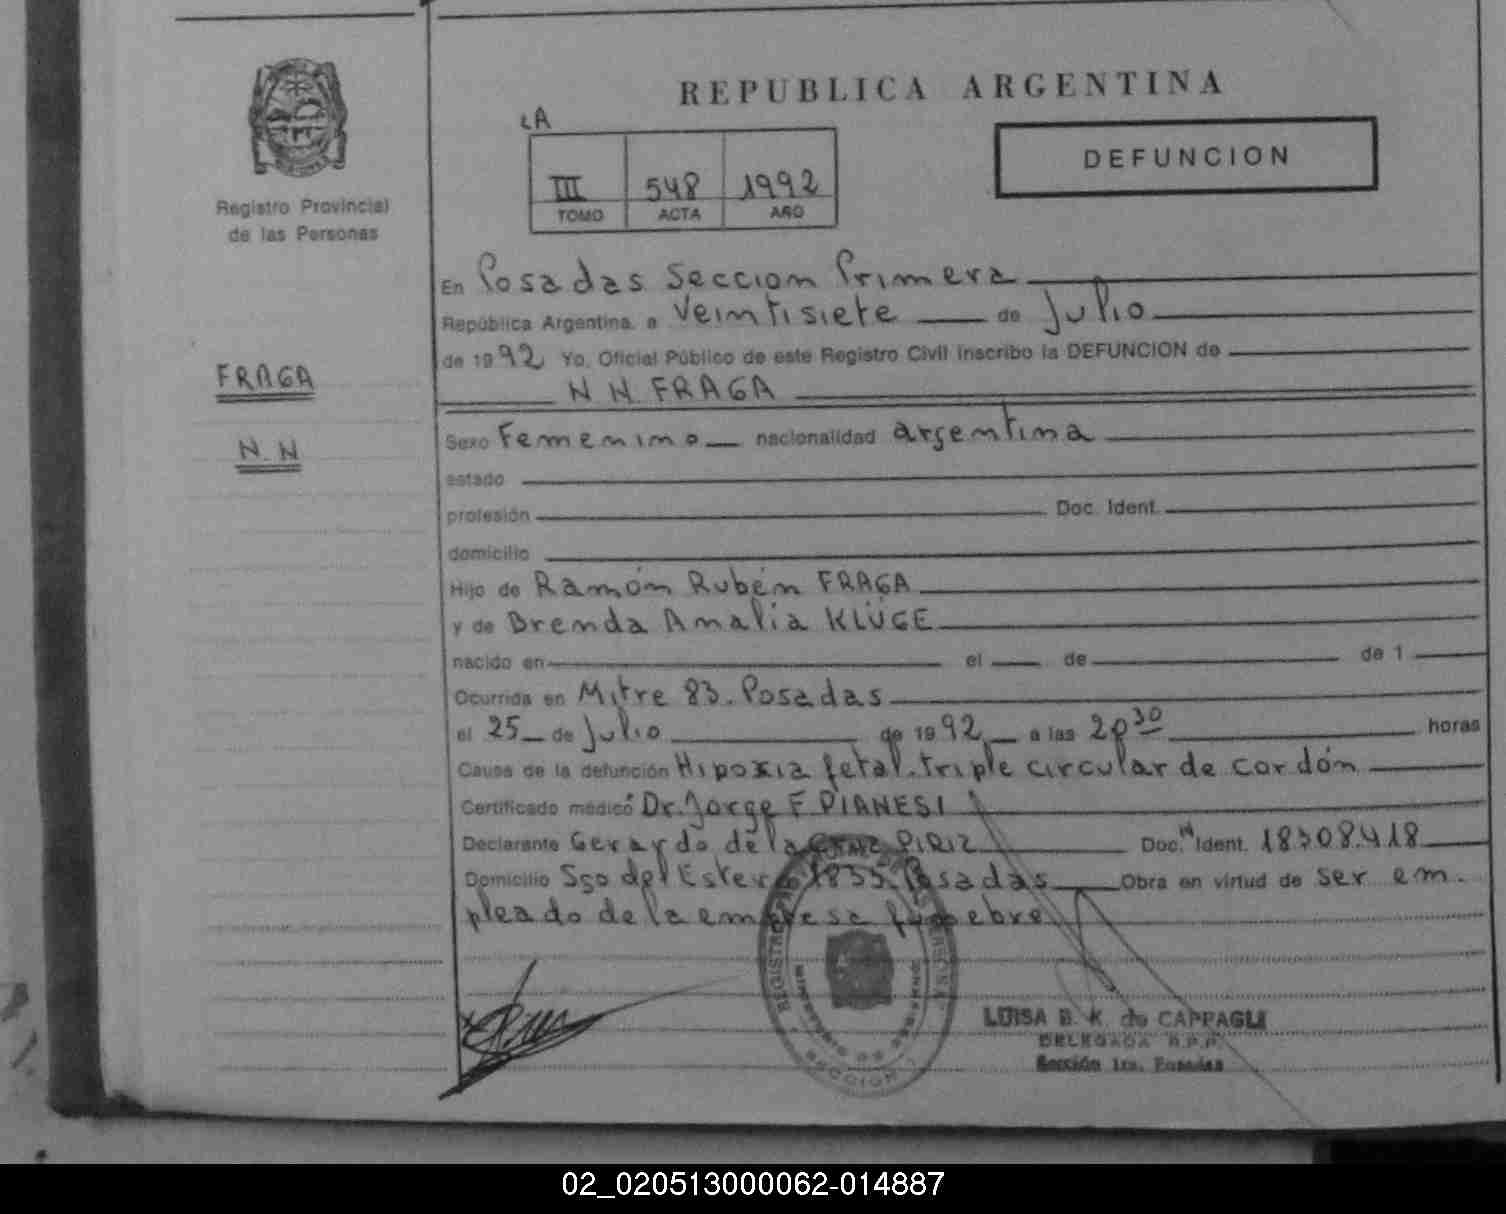 REPUBLICA ARGENTINA
LA
III 548 1992
TOMO ACTA AÑO
DEFUNCION
Registro Provincial
de las Personas
FRAGA
N.N
En Posadas Seccion Primera
República Argentina, a Veintisiete de Julio
de 1992 Yo, Oficial Público de este Registro Civil inscribo la DEFUNCION de
N N. FRAGA
Sexo Femenino nacionalidad argentina
estado
profesión Doc. Ident.
domicilio
Hijo de Ramón Rubén FRAGA
y de Brenda Amalia KLÜGE
nacido en el de de 1
Ocurrida en Mitre 83. Posadas
el 25 de Julio de 1992 a las 20 30 horas
Causa de la defunción Hipoxia fetal. triple circular de cordón
Certificado médico Dr. Jorge F PIANESI
Declarante Gerardo de la Cruz PIRIZ Doc. Ident. 18308.418
Domicilio Sgo del Estero 1855. Posadas Obra en virtud de ser em-
pleado de la empresa fúnebre
REGISTRO PROVINCIAL DE LAS PERSONAS
MINISTERIO DE GOBIERNO
SECCION 1
LUISA B. K. de CAPPAGLI
DELEGADA R.P.P.
Sección 1ra. Posadas
02_020513000062-014887